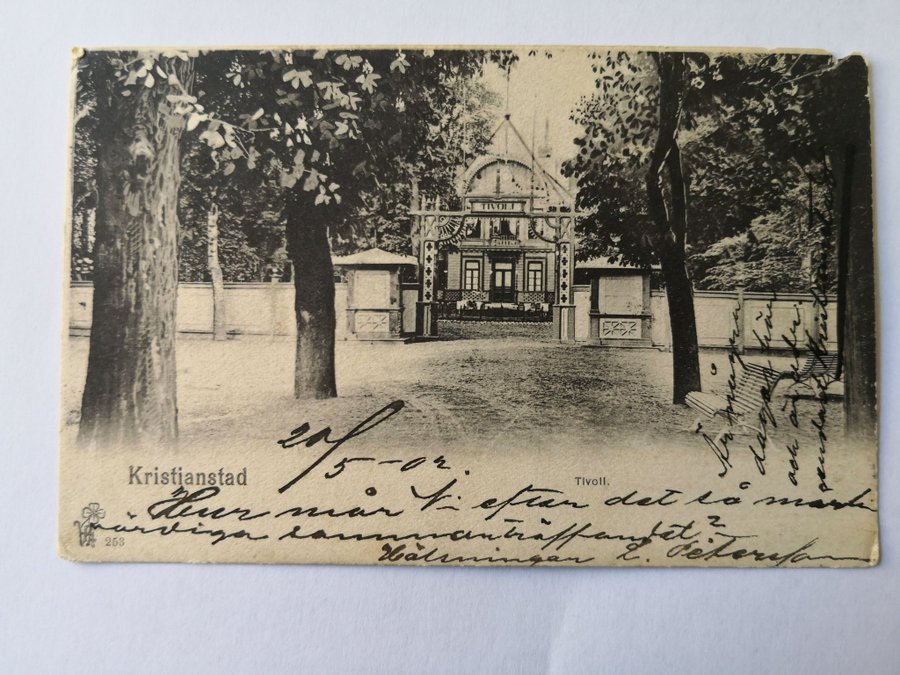 TIVOLI
Kristianstad
Tivoli.
20/5-02.
Hur mår Ni efter det så mark-
värdiga sammanträffandet?
Hälsningar L. Petersson
253
Är
dagar här
och är